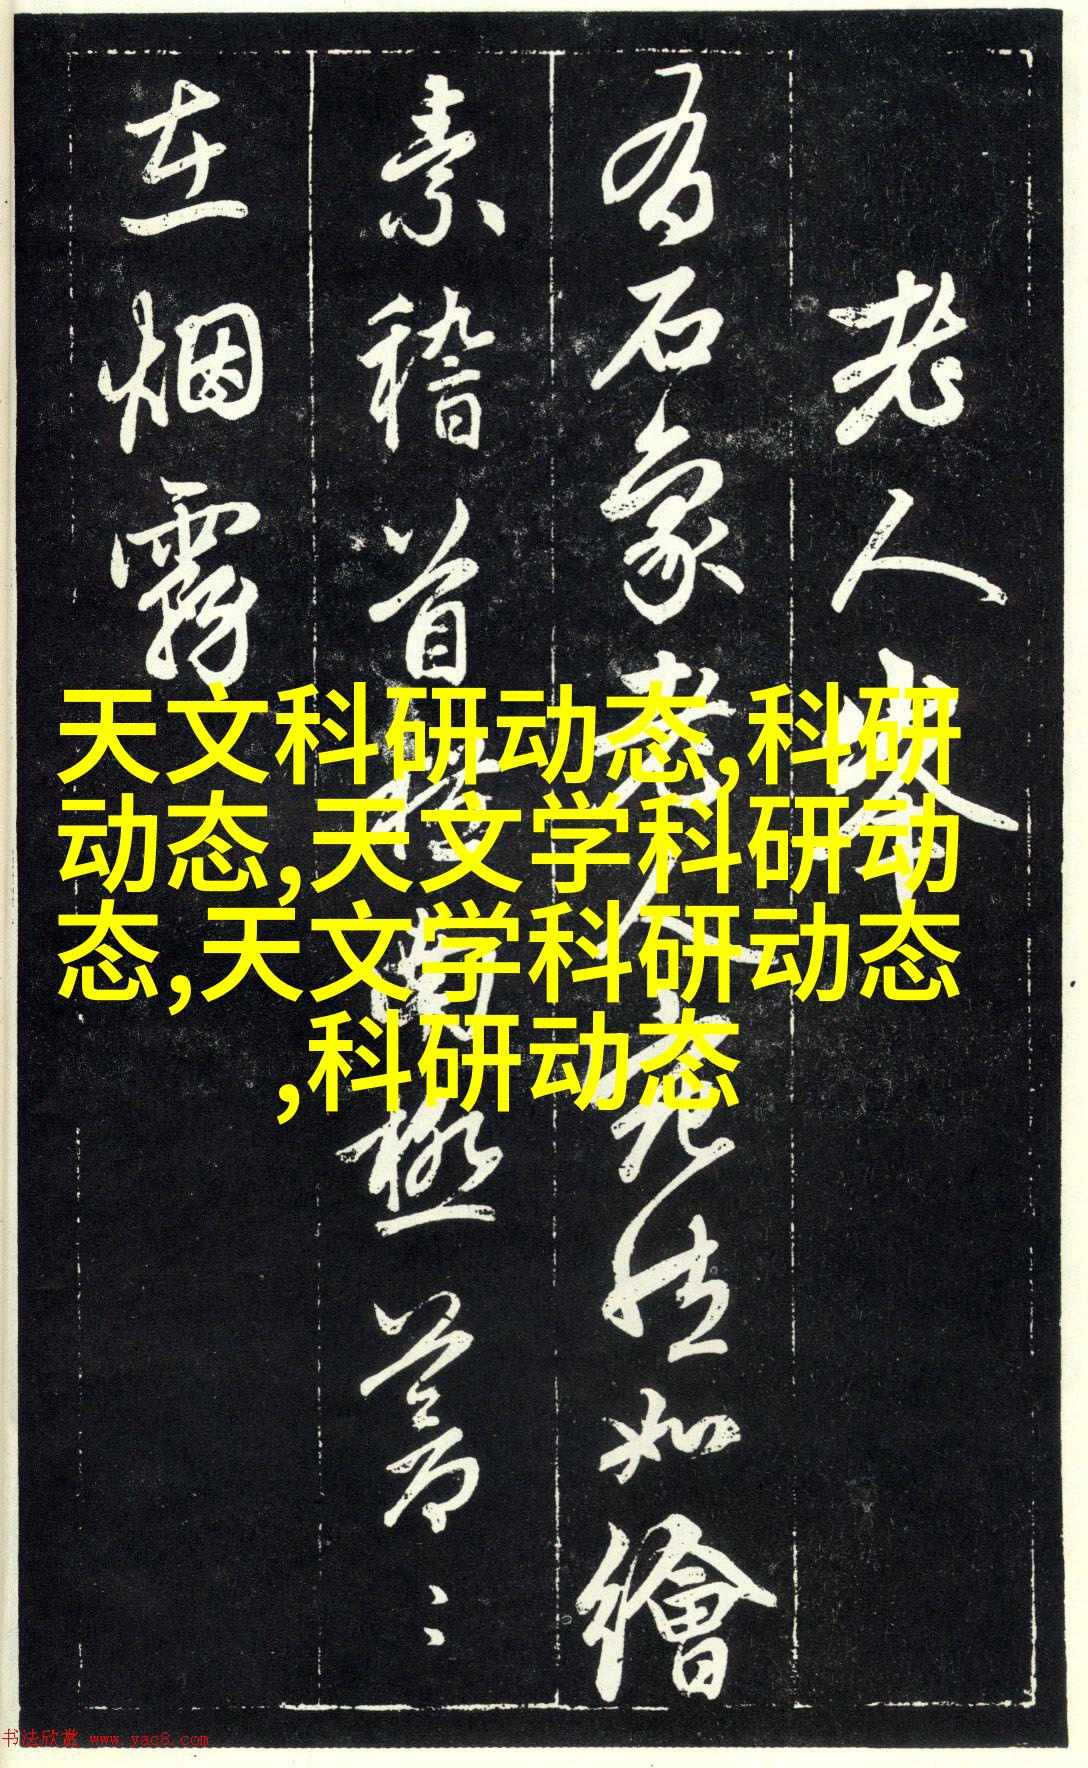 老人峯
有石象老人宛然如繪
素稽首拱南極蒼〻
在烟霧
天文科研动态,科研
动态,天文学科研动
态,天文学科研动态
,科研动态
书法欣赏 www.yac8.com